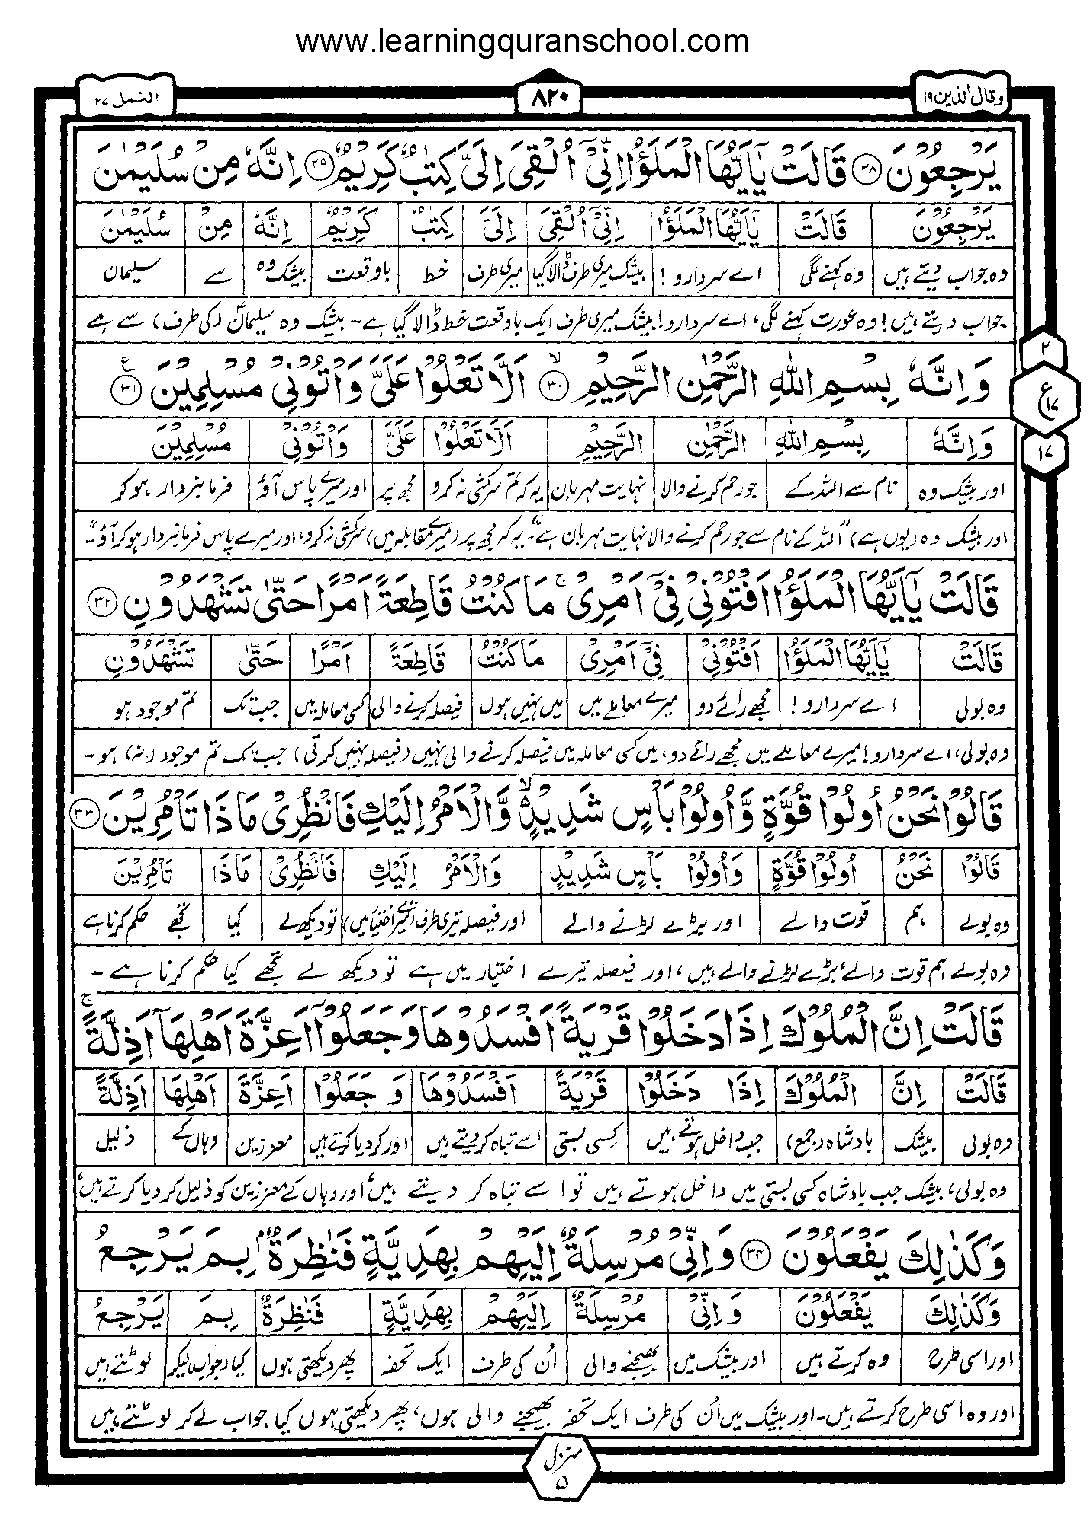 www.learningquranschool.com
وقال الذين ۱۹
۸۲۰
النمل ۲۷
يَرْجِعُوْنَ ﴿۲۸﴾ قَالَتْ يٰۤاَيُّهَا الْمَلَؤُا اِنِّيْۤ اُلْقِيَ اِلَيَّ كِتٰبٌ كَرِيْمٌ ﴿۲۹﴾ اِنَّهٗ مِنْ سُلَيْمٰنَ
يَرْجِعُوْنَ قَالَتْ يٰۤاَيُّهَا الْمَلَؤُا اِنِّيْۤ اُلْقِيَ اِلَيَّ كِتٰبٌ كَرِيْمٌ اِنَّهٗ مِنْ سُلَيْمٰنَ
وہ جواب دیتے ہیں وہ کہنے لگی اے سردارو! بیشک میری طرف ڈالا گیا میری طرف خط باوقعت بیشک وہ سے سلیمان
جواب دیتے ہیں! وہ عورت کہنے لگی، اے سردارو! بیشک میری طرف ایک باوقعت خط ڈالا گیا ہے۔ بیشک وہ سلیمانؑ (کی طرف) سے ہے
وَاِنَّهٗ بِسْمِ اللّٰهِ الرَّحْمٰنِ الرَّحِيْمِ ﴿۳۰﴾ اَلَّا تَعْلُوْا عَلَيَّ وَاْتُوْنِيْ مُسْلِمِيْنَ ﴿۳۱﴾
۲
ع ۱۷
۱۷
وَاِنَّهٗ بِسْمِ اللّٰهِ الرَّحْمٰنِ الرَّحِيْمِ اَلَّا تَعْلُوْا عَلَيَّ وَاْتُوْنِيْ مُسْلِمِيْنَ
اور بیشک وہ نام سے اللہ کے جو رحم کرنے والا نہایت مہربان یہ کہ تم سرکشی نہ کرو مجھ پر اور میرے پاس آؤ فرمانبردار ہو کر
اور بیشک وہ (یوں ہے) "اللہ کے نام سے جو رحم کرنے والا نہایت مہربان ہے"۔ یہ کہ مجھ پر (میرے مقابلہ میں) سرکشی نہ کرو، اور میرے پاس فرمانبردار ہو کر آؤ"
قَالَتْ يٰۤاَيُّهَا الْمَلَؤُا اَفْتُوْنِيْ فِيْۤ اَمْرِيْ ۚ مَا كُنْتُ قَاطِعَةً اَمْرًا حَتّٰى تَشْهَدُوْنِ ﴿۳۲﴾
قَالَتْ يٰۤاَيُّهَا الْمَلَؤُا اَفْتُوْنِيْ فِيْۤ اَمْرِيْ مَا كُنْتُ قَاطِعَةً اَمْرًا حَتّٰى تَشْهَدُوْنِ
وہ بولی اے سردارو! مجھے رائے دو میرے معاملے میں میں نہیں ہوں فیصلہ کرنے والی کسی معاملہ میں جب تک تم موجود ہو
وہ بولی، اے سردارو! میرے معاملے میں مجھے رائے دو، میں کسی معاملہ میں فیصلہ کرنے والی نہیں (فیصلہ نہیں کرتی) جب تک تم موجود (نہ) ہو۔
قَالُوْا نَحْنُ اُولُوْا قُوَّةٍ وَّاُولُوْا بَاْسٍ شَدِيْدٍ ۙ وَّالْاَمْرُ اِلَيْكِ فَانْظُرِيْ مَاذَا تَاْمُرِيْنَ ﴿۳۳﴾
قَالُوْا نَحْنُ اُولُوْا قُوَّةٍ وَاُولُوْا بَاْسٍ شَدِيْدٍ وَالْاَمْرُ اِلَيْكِ فَانْظُرِيْ مَاذَا تَاْمُرِيْنَ
وہ بولے ہم قوت والے اور بڑے لڑنے والے اور فیصلہ تیری طرف (تیرے اختیار میں) تو دیکھ لے کیا تجھے حکم کرنا ہے
وہ بولے ہم قوت والے، بڑے لڑنے والے ہیں، اور فیصلہ تیرے اختیار میں ہے تو دیکھ لے تجھے کیا حکم کرنا ہے۔
قَالَتْ اِنَّ الْمُلُوْكَ اِذَا دَخَلُوْا قَرْيَةً اَفْسَدُوْهَا وَجَعَلُوْۤا اَعِزَّةَ اَهْلِهَاۤ اَذِلَّةً ۚ
قَالَتْ اِنَّ الْمُلُوْكَ اِذَا دَخَلُوْا قَرْيَةً اَفْسَدُوْهَا وَ جَعَلُوْۤا اَعِزَّةَ اَهْلِهَا اَذِلَّةً
وہ بولی بیشک بادشاہ (جمع) جب داخل ہوتے ہیں کسی بستی اسے تباہ کر دیتے ہیں اور کر دیا کرتے ہیں معززین وہاں کے ذلیل
وہ بولی، بیشک جب بادشاہ کسی بستی میں داخل ہوتے ہیں تو اسے تباہ کر دیتے ہیں، اور وہاں کے معززین کو ذلیل کر دیا کرتے ہیں،
وَكَذٰلِكَ يَفْعَلُوْنَ ﴿۳۴﴾ وَاِنِّيْ مُرْسِلَةٌ اِلَيْهِمْ بِهَدِيَّةٍ فَنٰظِرَةٌۢ بِمَ يَرْجِعُ
وَكَذٰلِكَ يَفْعَلُوْنَ وَاِنِّيْ مُرْسِلَةٌ اِلَيْهِمْ بِهَدِيَّةٍ فَنٰظِرَةٌ بِمَ يَرْجِعُ
اور اسی طرح وہ کرتے ہیں اور بیشک میں بھیجنے والی اُن کی طرف ایک تحفہ پھر دیکھتی ہوں کیا (جواب) لیکر لوٹتے ہیں
اور وہ اسی طرح کرتے ہیں۔ اور بیشک میں اُن کی طرف ایک تحفہ بھیجنے والی ہوں، پھر دیکھتی ہوں کیا جواب لے کر لوٹتے ہیں
منزل ۵